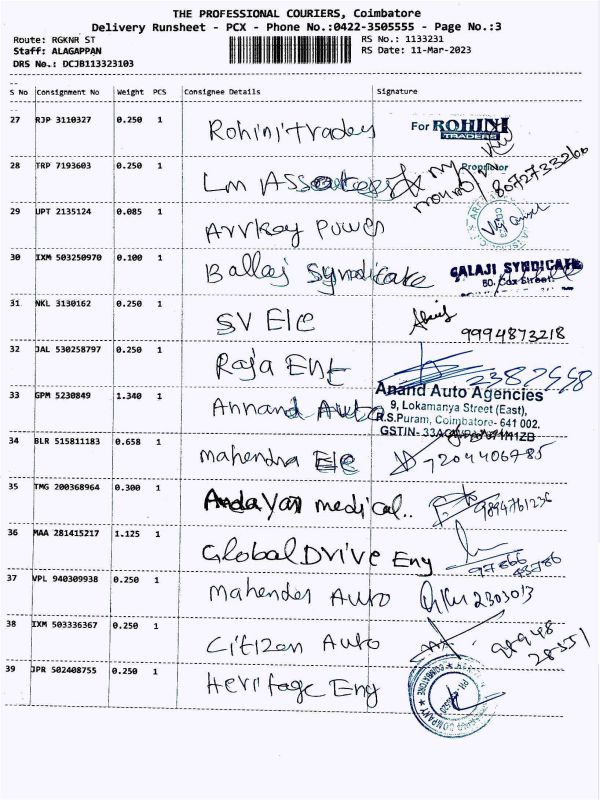 THE PROFESSIONAL COURIERS, Coimbatore
Delivery Runsheet - PCX - Phone No.:0422-3505555 - Page No.:3
Route: RGKNR ST
RS No.: 1133231
Staff: ALAGAPPAN
RS Date: 11-Mar-2023
DRS No.: DCJB113323103
S No Consignment No Weight PCS Consignee Details Signature
27 RJP 3110327 0.250 1 Rohini traders For ROHINI TRADERS
Proprietor
28 TRP 7193603 0.250 1 Lm Associates 8072733260
29 UPT 2135124 0.085 1 Arrkay Power
30 IXM 503250970 0.100 1 Ballaj Syndicate BALAJI SYNDICATE
80. Cox Street
31 NKL 3130162 0.250 1 SV Ele 9994873218
32 JAL 530258797 0.250 1 Raja Ent
33 GPM 5230849 1.340 1 Annand Auto Anand Auto Agencies
9, Lokamanya Street (East),
R.S.Puram, Coimbatore- 641 002.
34 BLR 515811183 0.658 1 Mahendra Ele 7204406785
35 TMG 200368964 0.300 1 Andavan medical.. 9894761236
36 MAA 281415217 1.125 1 Global Drive Eng
37 VPL 940309938 0.250 1 Mahender Auto 2303013
38 IXM 503336367 0.250 1 Citizen Auto
39 JPR 502408755 0.250 1 Heritage Eng